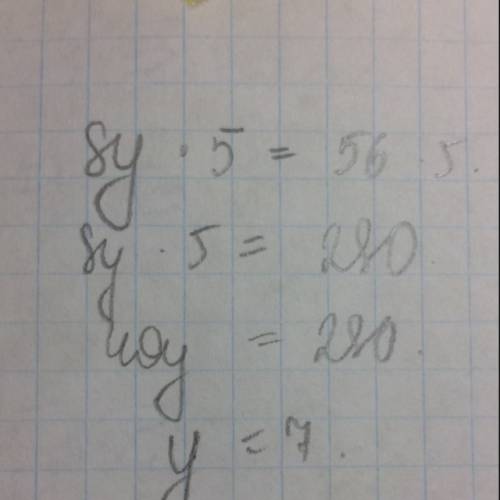 8y · 5 = 56 · 5.
8y · 5 = 280.
40y = 280.
y = 7.